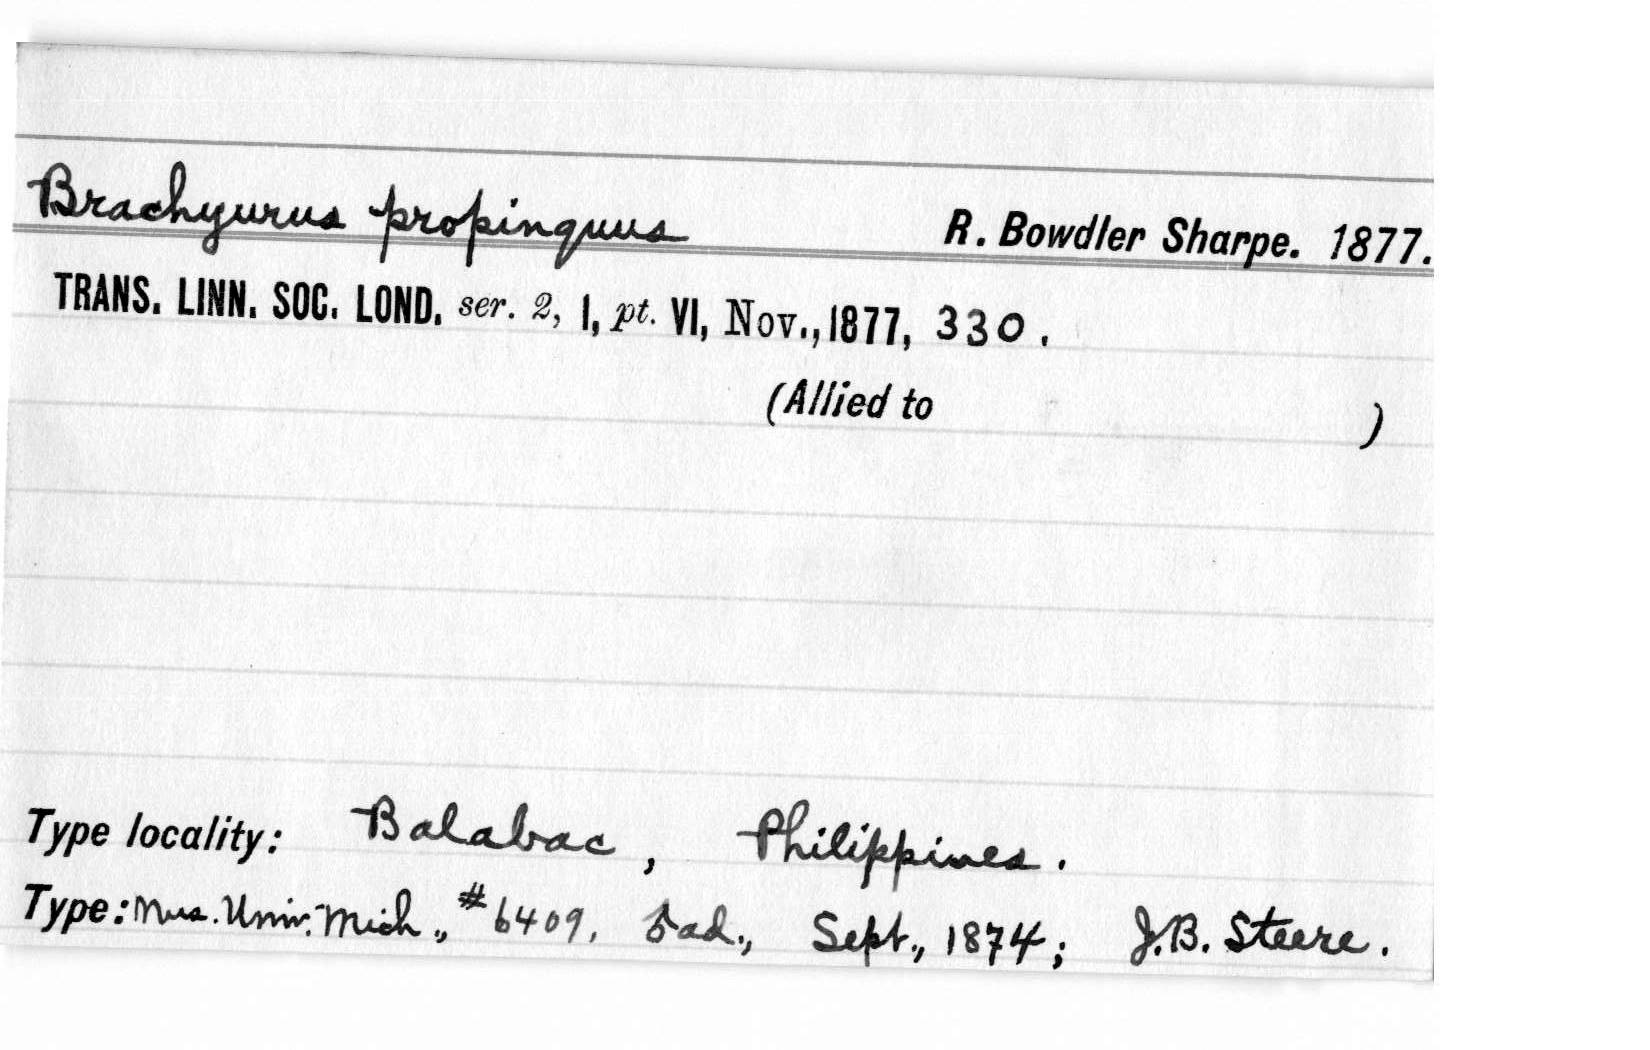 Brachyurus propinquus R. Bowdler Sharpe. 1877.
TRANS. LINN. SOC. LOND. ser. 2, I, pt. VI, Nov., 1877, 330.
(Allied to )
Type locality: Balabac, Philippines.
Type: Mus. Univ. Mich., #6409, ♂ad., Sept., 1874; J.B. Steere.